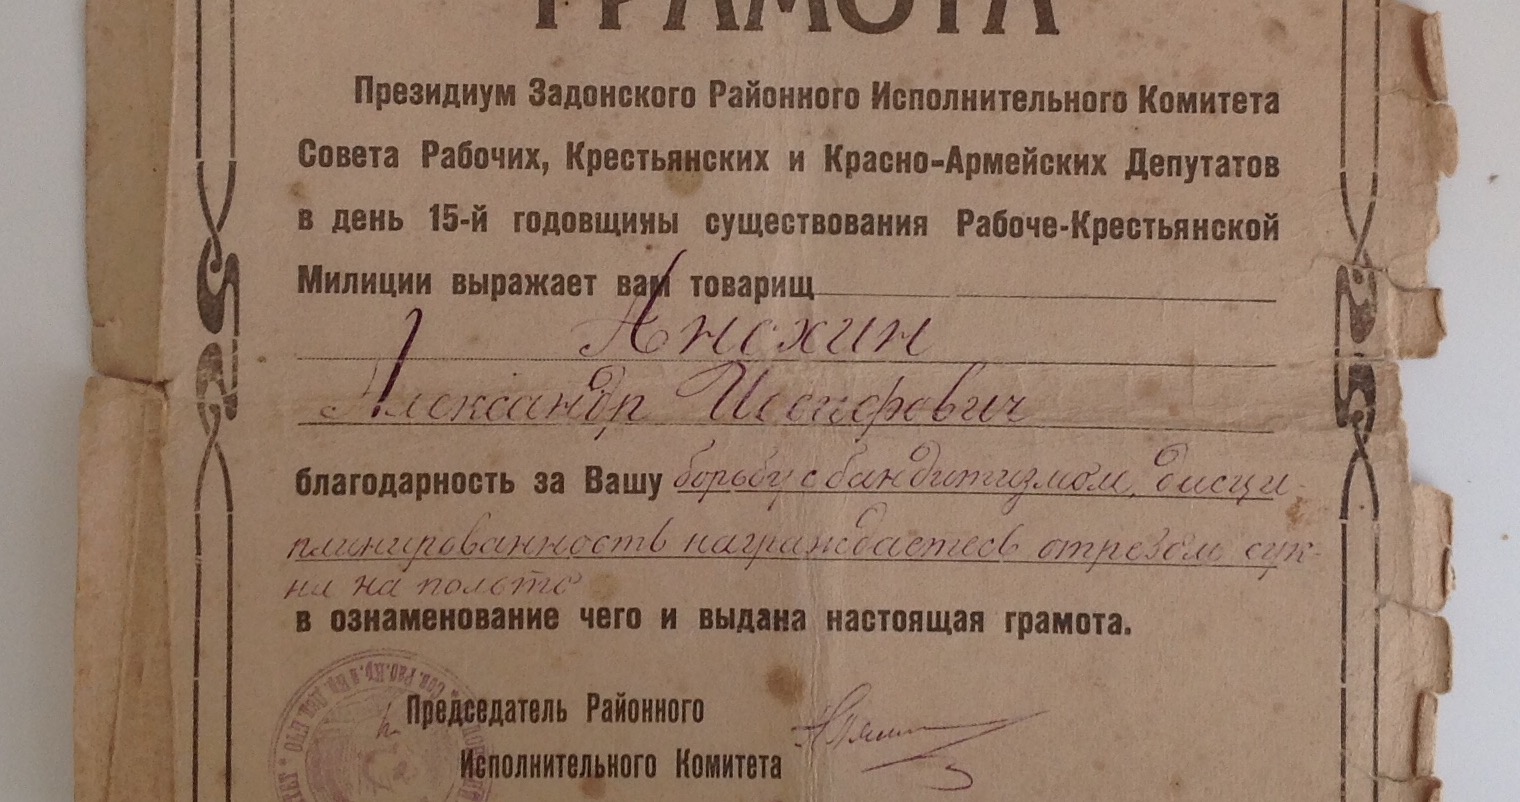 ГРАМОТА
Президиум Задонского Районного Исполнительного Комитета
Совета Рабочих, Крестьянских и Красно-Армейских Депутатов
в день 15-й годовщины существования Рабоче-Крестьянской
Милиции выражает вам товарищ
Анохин
Александр Иосифович
благодарность за Вашу борьбу с бандитизмом, дисци-
плинированность награждаетесь отрезом сук-
на на польто
в ознаменование чего и выдана настоящая грамота.
Председатель Районного
Исполнительного Комитета